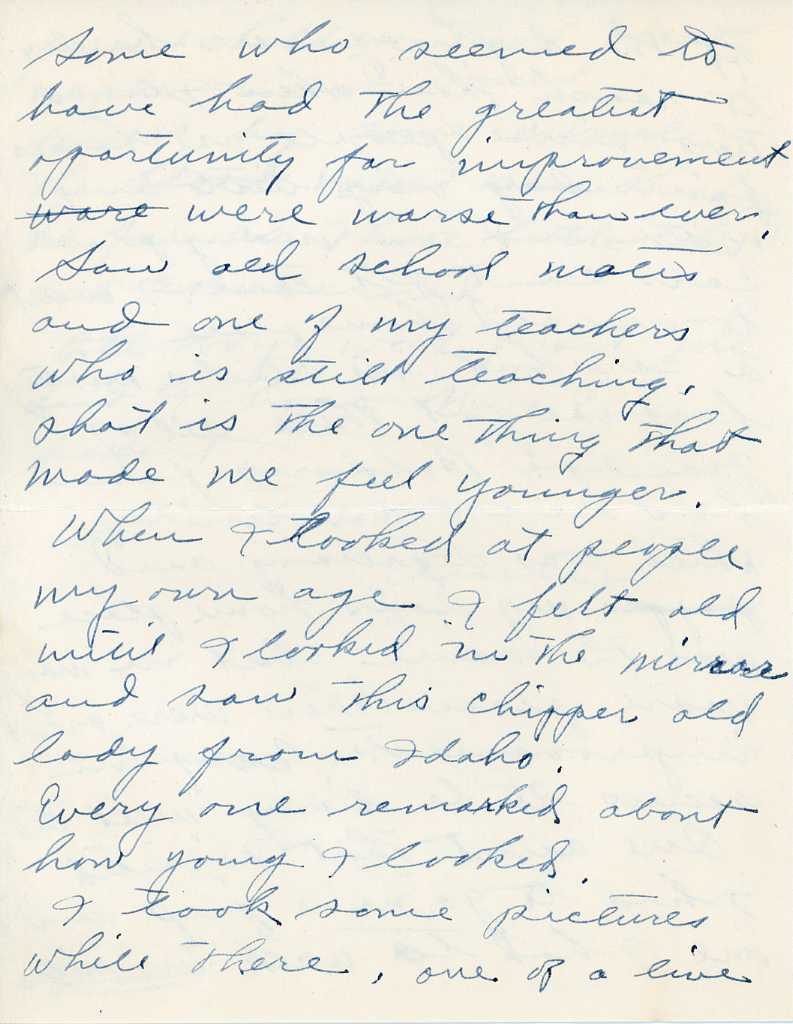 Some who seemed to
have had the greatest
oportunity for improvement
ware were worse than ever.
Saw old school mates
and one of my teachers
who is still teaching.
shat is the one thing that
made me feel younger.
When I looked at people
my own age I felt old
until I looked in the mirror
and saw this chipper old
lady from Idaho.
Every one remarked about
how young I looked.
I took some pictures
while there, one of a live